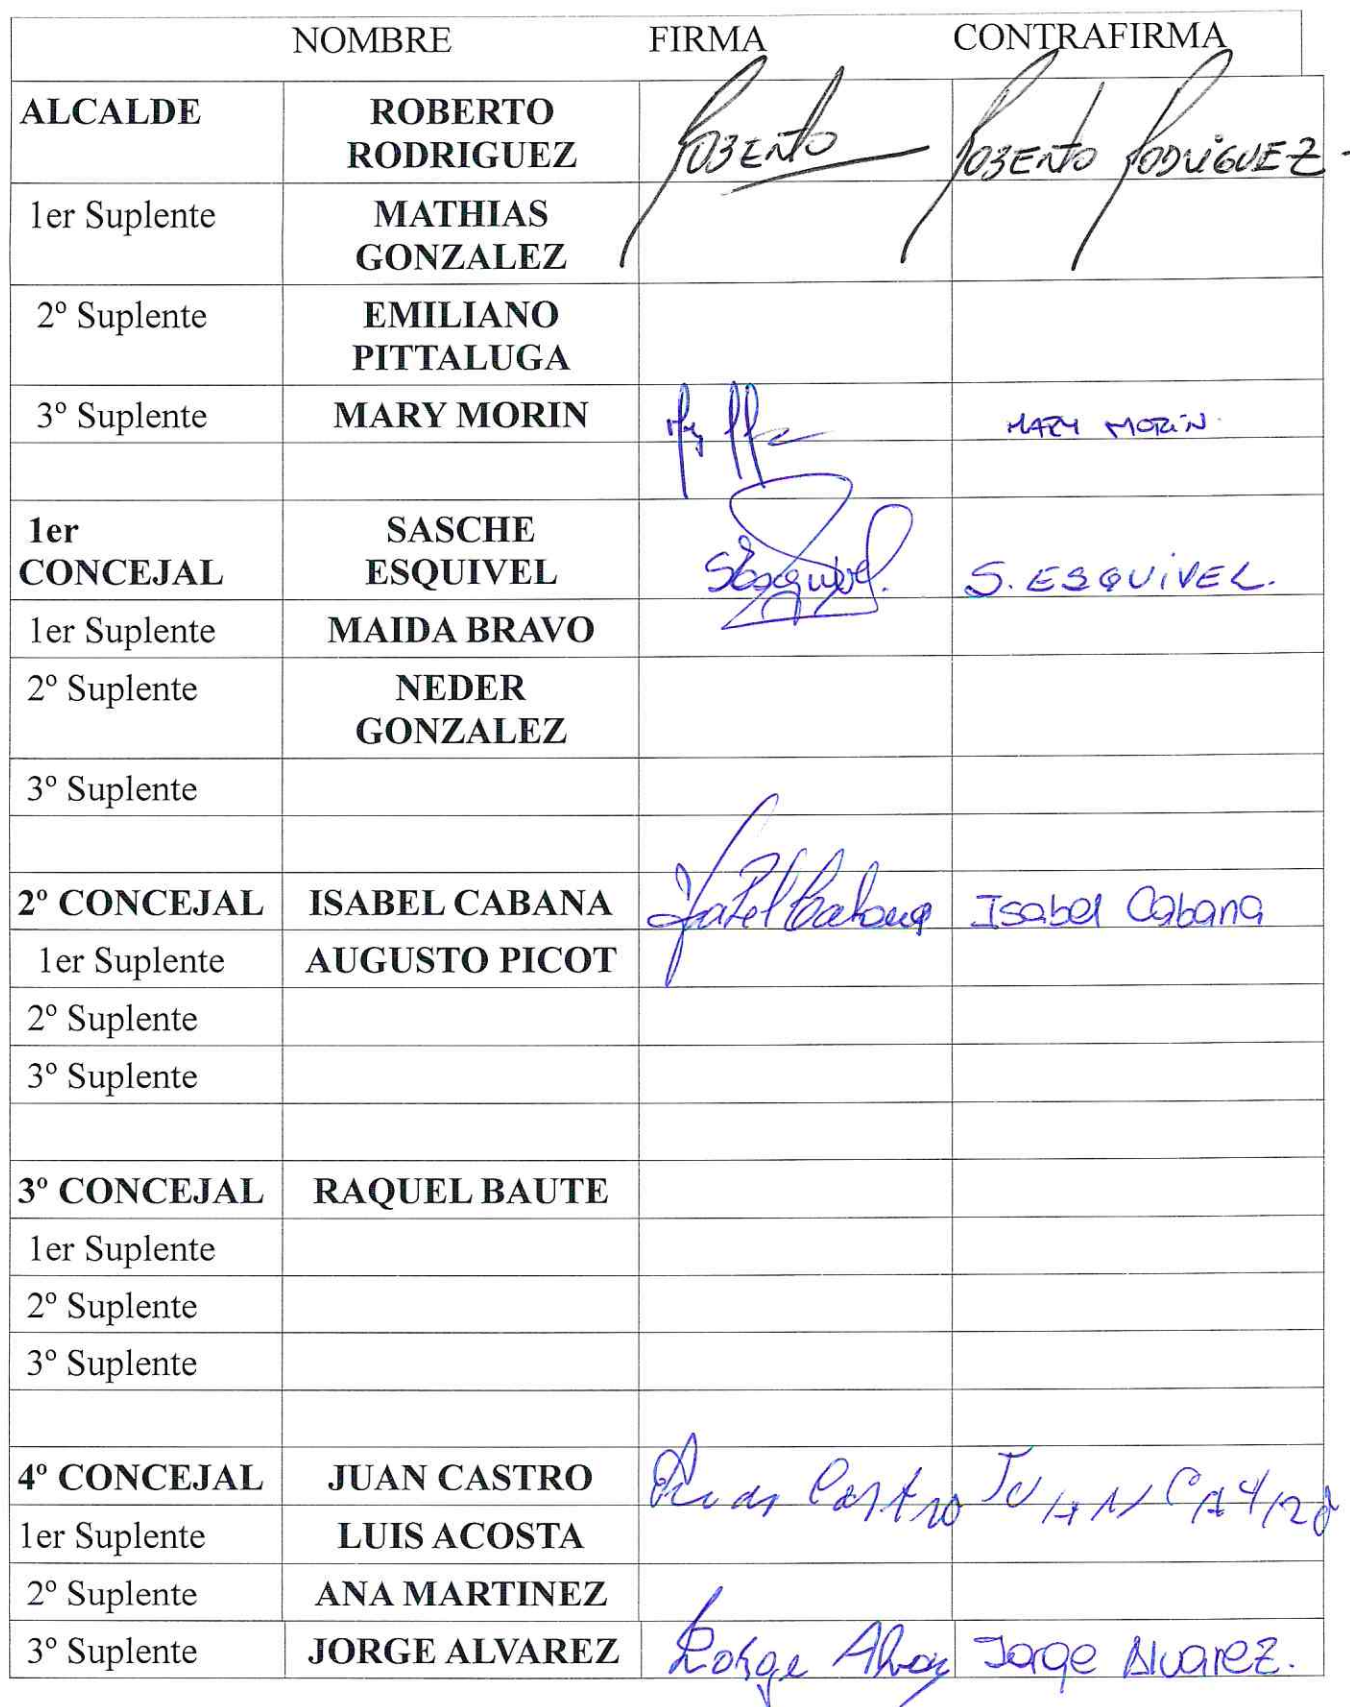 NOMBRE FIRMA CONTRAFIRMA
ALCALDE ROBERTO RODRIGUEZ ROBERTO ROBERTO RODRIGUEZ.
1er Suplente MATHIAS GONZALEZ
2º Suplente EMILIANO PITTALUGA
3º Suplente MARY MORIN MARY MORIN.
1er CONCEJAL SASCHE ESQUIVEL SEsquivel. S. ESQUIVEL.
1er Suplente MAIDA BRAVO
2º Suplente NEDER GONZALEZ
3º Suplente
2º CONCEJAL ISABEL CABANA Isabel Cabana Isabel Cabana
1er Suplente AUGUSTO PICOT
2º Suplente
3º Suplente
3º CONCEJAL RAQUEL BAUTE
1er Suplente
2º Suplente
3º Suplente
4º CONCEJAL JUAN CASTRO Juan Castro JUAN CASTRO
1er Suplente LUIS ACOSTA
2º Suplente ANA MARTINEZ
3º Suplente JORGE ALVAREZ Jorge Jorge Alvarez.